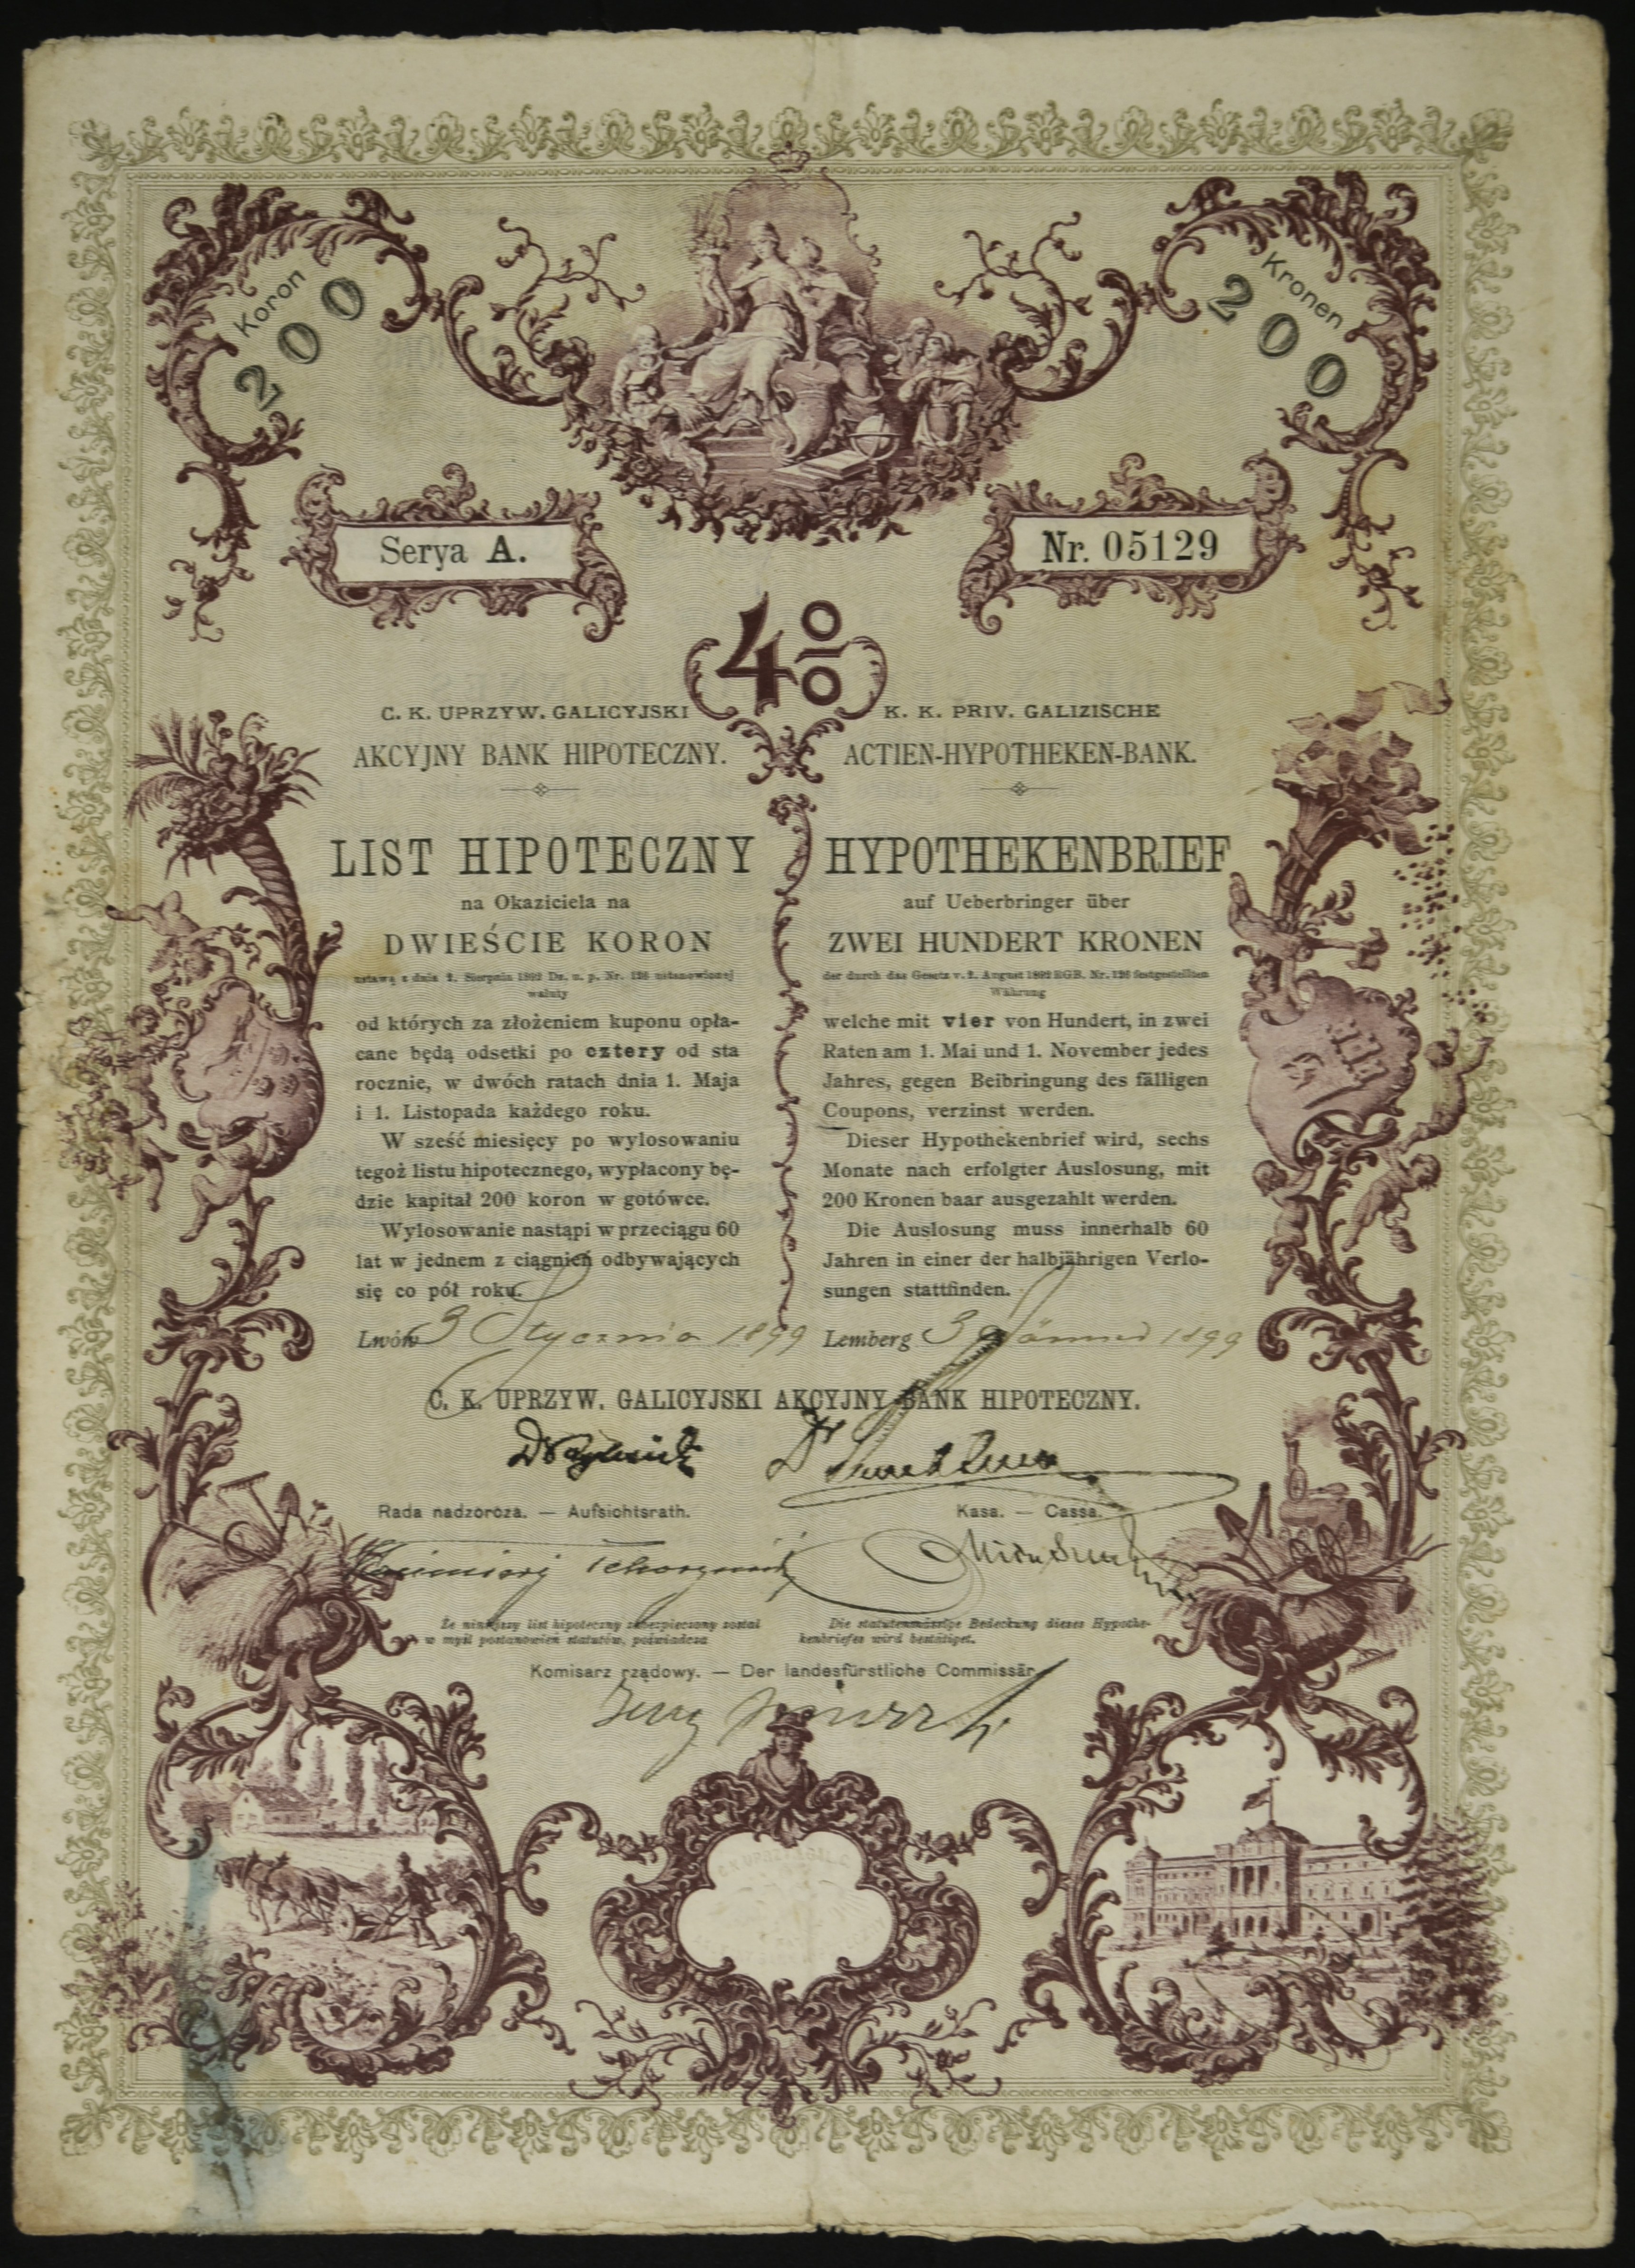 Koron
200
Kronen
200
Serya A.
Nr. 05129
4%
C. K. UPRZYW. GALICYJSKI
AKCYJNY BANK HIPOTECZNY.
LIST HIPOTECZNY
na Okaziciela na
DWIEŚCIE KORON
ustawą z dnia 2. Sierpnia 1892 Dz. u. p. Nr. 126 ustanowionej
waluty
od których za złożeniem kuponu opła-
cane będą odsetki po cztery od sta
rocznie, w dwóch ratach dnia 1. Maja
i 1. Listopada każdego roku.
W sześć miesięcy po wylosowaniu
tegoż listu hipotecznego, wypłacony bę-
dzie kapitał 200 koron w gotówce.
Wylosowanie nastąpi w przeciągu 60
lat w jednem z ciągnień odbywających
się co pół roku.
Lwów 3 Stycznia 1899
K. K. PRIV. GALIZISCHE
ACTIEN-HYPOTHEKEN-BANK.
HYPOTHEKENBRIEF
auf Ueberbringer über
ZWEI HUNDERT KRONEN
der durch das Gesetz v. 2. August 1892 RGB. Nr. 126 festgestellten
Währung
welche mit vier von Hundert, in zwei
Raten am 1. Mai und 1. November jedes
Jahres, gegen Beibringung des fälligen
Coupons, verzinst werden.
Dieser Hypothekenbrief wird, sechs
Monate nach erfolgter Auslosung, mit
200 Kronen baar ausgezahlt werden.
Die Auslosung muss innerhalb 60
Jahren in einer der halbjährigen Verlo-
sungen stattfinden.
Lemberg 3 Jänner 1899
C. K. UPRZYW. GALICYJSKI AKCYJNY BANK HIPOTECZNY.
Dr
Rada nadzorcza. — Aufsichtsrath.
Kasa. — Cassa.
Kazimierz
Że niniejszy list hipoteczny zabezpieczony został
w myśl postanowień statutów, poświadcza
Die statutenmässige Bedeckung dieses Hypothe-
kenbriefes wird bestätiget.
Komisarz rządowy. — Der landesfürstliche Commissär.